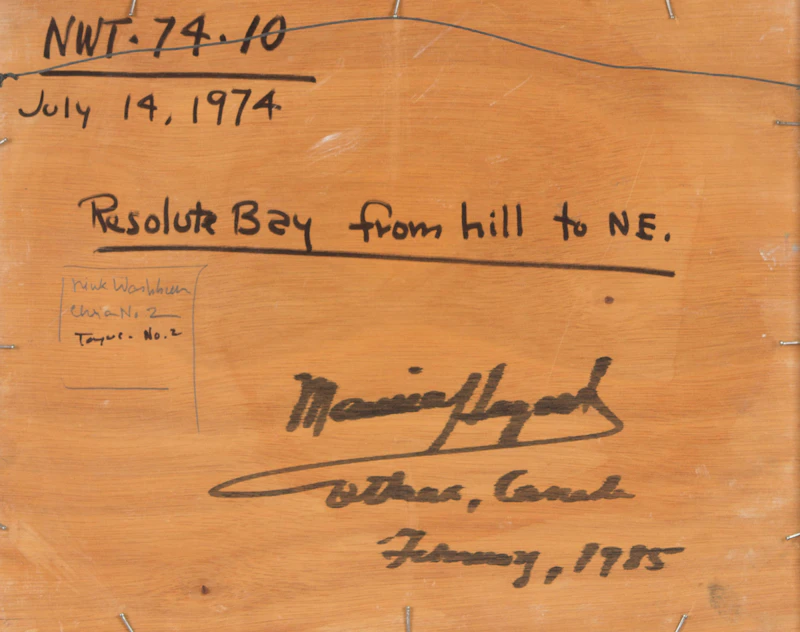 NWT. 74. 10
July 14, 1974
Resolute Bay from hill to NE.
No. 2
No. 2
Maurice Haycock
Ottawa, Canada
February, 1985